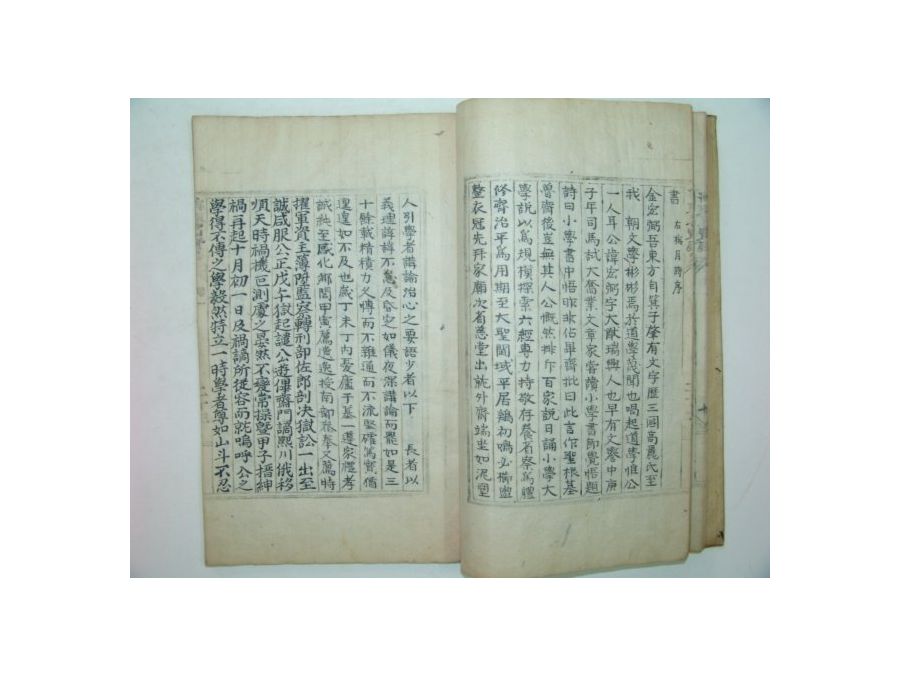 書 右秋月時序
金宏弼吾東方自箕子肇有文字歷三國高麗氏至
我 朝文學彬彬焉於道學蔑聞也唱起道學惟公
一人耳公諱宏弼字大猷瑞興人也早有文譽中庚
子年司馬試大奮業文章家嘗讀小學書卽覺悟題
詩曰小學書中悟昨非佔畢齋批曰此言作聖根基
魯齋後豈無其人公慨然排斥百家說日誦小學大
學說以爲規模探索六經專力持敬存養省察爲體
修齊治平爲用期至大聖閫域平居鷄初鳴必櫛盥
整衣冠先拜家廟次省慈堂出就外齋端坐如泥塑
人引學者講論治心之要語少者以下 長者以
義理諄諄不怠及昏定之如儀夜深講論而罷如是三
十餘載精積力久博而不雜通而不流堅確篤實循
遑遑如不及也歲丁未丁內憂廬于墓一遵家禮孝
誠純至感化鄰閭甲寅薦遺逸授南部叅奉又薦特
擢軍資主薄陞監察轉刑部佐郎剖決獄訟一出至
誠咸服公正戊午獄起譴公遊畢齋門謫熙川俄移
順天時禍機叵測處之晏然不變常操曁甲子搢紳
禍再起十月初一日及禍謫所從容而就嗚呼公之
學得不傳之學毅然特立一時學者尊如山斗不忍